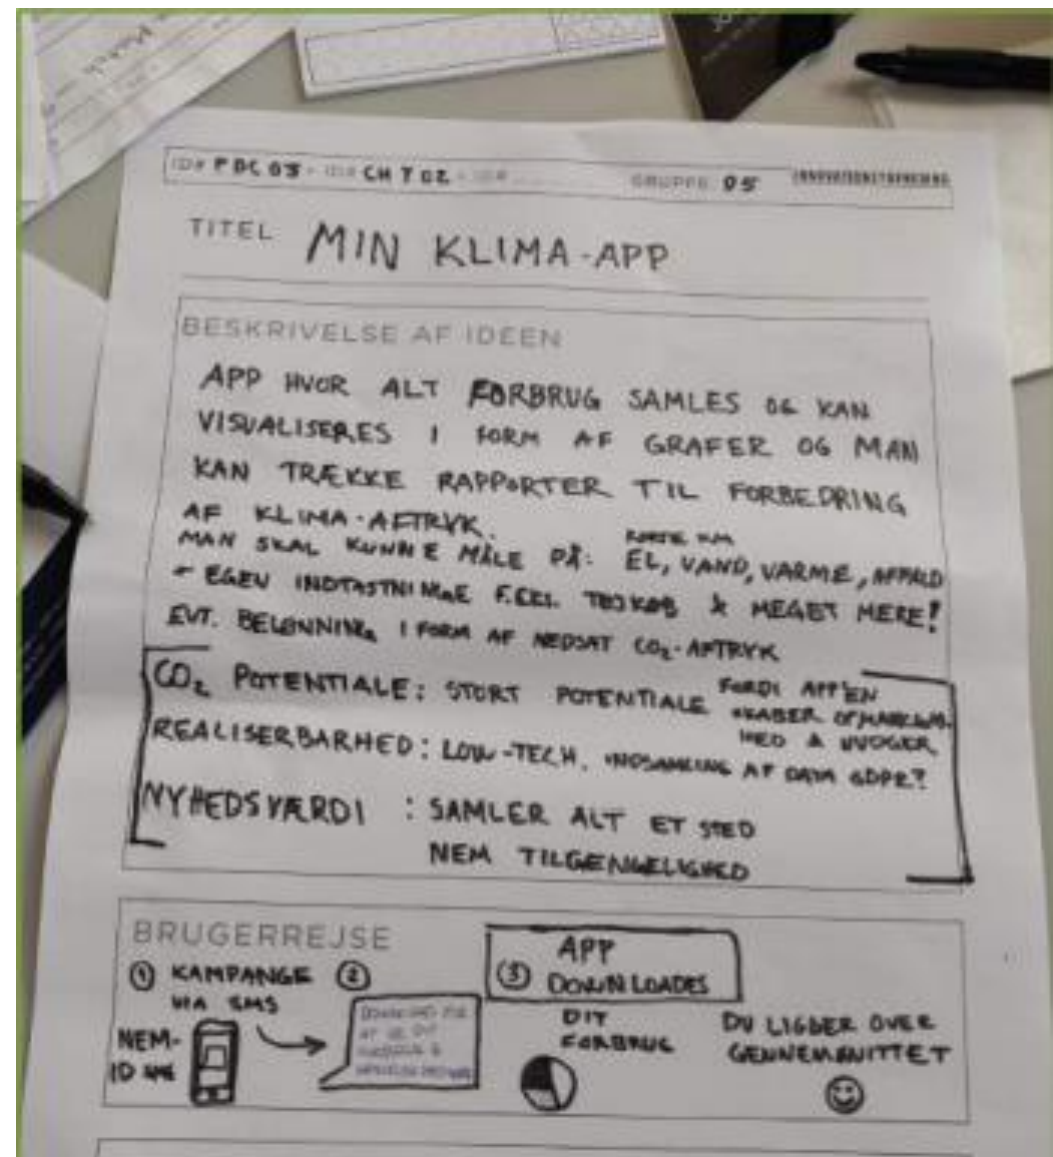 ID# PDC 03 - ID# CH T 02 - ID#
GRUPPE 05
TITEL MIN KLIMA-APP
BESKRIVELSE AF IDEEN
APP HVOR ALT FORBRUG SAMLES OG KAN
VISUALISERES I FORM AF GRAFER OG MAN
KAN TRÆKKE RAPPORTER TIL FORBEDRING
AF KLIMA-AFTRYK.
MAN SKAL KUNNE MÅLE PÅ: EL, VAND, VARME, AFFALD
KØRTE KM
EGEN INDTASTNING F.EKS. TØJKØB & MEGET MERE!
EVT. BELØNNING I FORM AF NEDSAT CO₂-AFTRYK
CO₂ POTENTIALE: STORT POTENTIALE FORDI APP'EN
SKABER OPMÆRKSOM-
HED
REALISERBARHED: LOW-TECH. INDSAMLING AF DATA GDPR?
NYHEDSVÆRDI : SAMLER ALT ET STED
NEM TILGENGELIGHED
BRUGERREJSE
① KAMPANGE
VIA SMS
NEM-
ID
②
DOWNLOAD FOR
AT SE DIT
FORBRUG &
③ APP
DOWNLOADES
DIT
FORBRUG
DU LIGGER OVER
GENNEMSNITTET